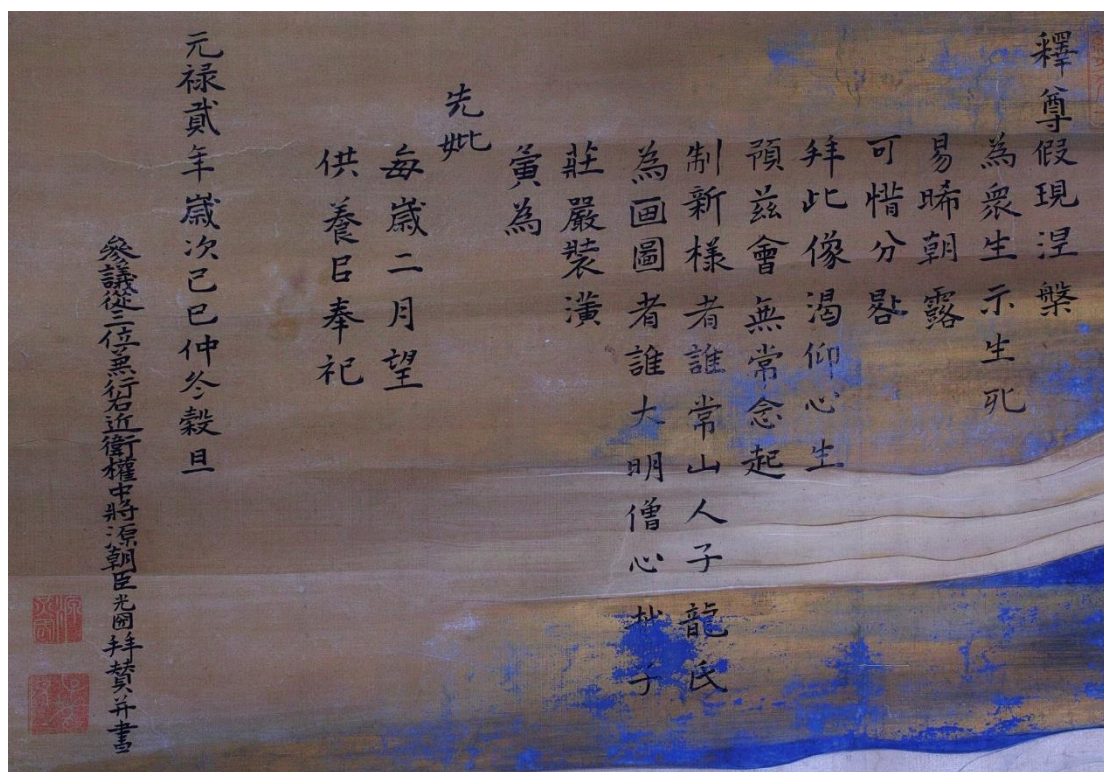 釋尊假現涅槃
為衆生示生死
易晞朝露
可惜分晷
拜此像渴仰心生
預茲會無常念起
制新樣者誰常山人子龍氏
為画圖者誰大明僧心子
莊嚴裝潢
寅為
先妣
每歲二月望
供養㠯奉祀
元禄貳年歲次己巳仲冬穀旦
參議從三位兼行右近衛權中將源朝臣光圀拜贊并書